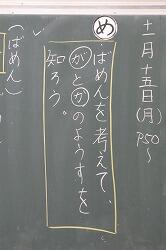 十一月十五日(月) P50〜
め
ばめんを考えて、
がとかのようすを
知ろう。
(ばめん)